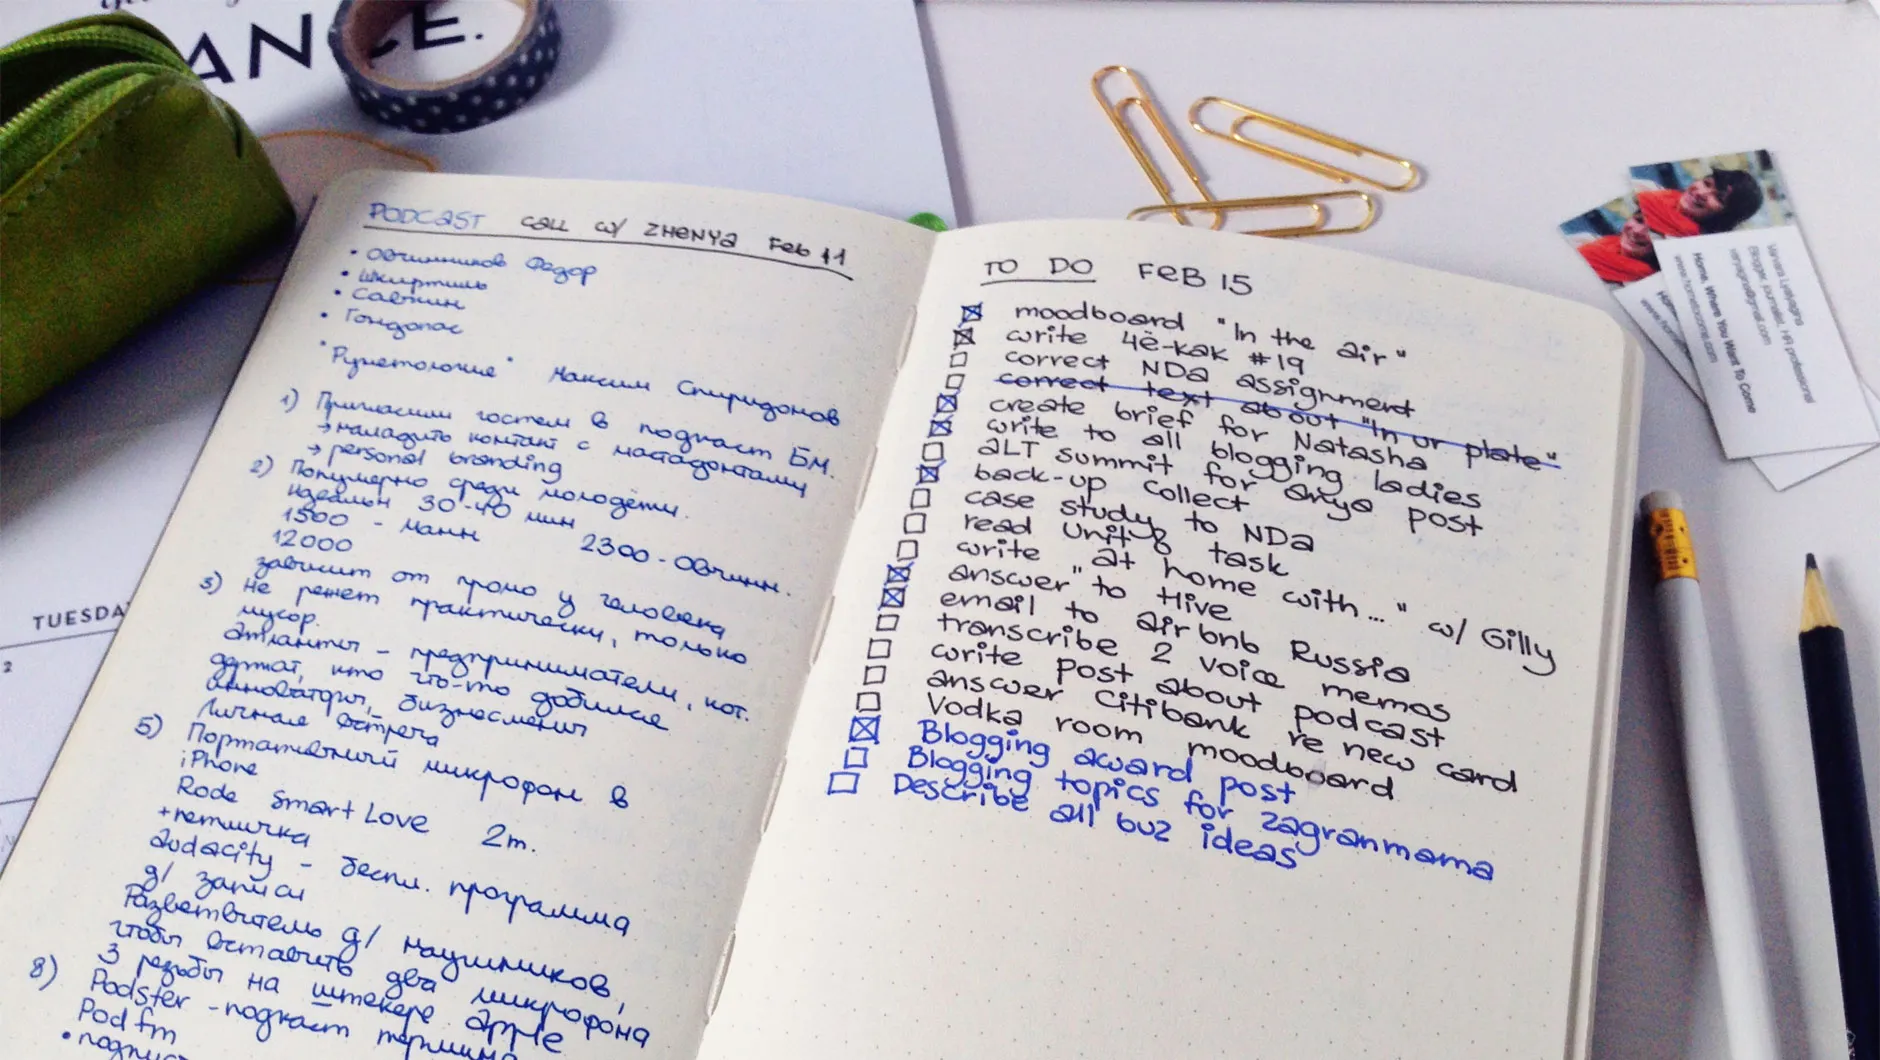 ANCE.
TUESDA
2
PODCAST call w/ ZHENYA Feb 11
• Овчинников Федор
• Шкиртиль
• Савкин
• Гондопас
"Рунетология" Максим Спиридонов
1) Пригласили гостем в подкаст БМ.
→ наладить контакт с мастадонтами
→ personal branding
2) Популярно среди молодежи.
идеальн 30-40 мин
1500 - манн 2300 - Овчинн.
12000
зависит от промо у человека
3) Не режет практически, только
мусор.
атланты - предприниматели, кот.
держат, кто что-то добился
инноваторы, бизнесмены
Личная встреча
5) Портативный микрофон в
iPhone
Rode Smart Love 2m.
+ петличка
audacity - беспл. программа
д/ записи
Разветвитель д/ наушников,
чтобы вставить два микрофона
3 резьбы на штекере apple
8) Podster - подкаст
Pod fm
TO DO FEB 15
moodboard "In the air"
write чё-как #19
correct NDa assignment
correct text about "In ur plate"
create brief for Natasha
write to all blogging ladies
aLT summit for anya post
back-up collect
case study to NDa
read Unit 8 task
write "at home with..." w/ Gilly
answer to Hive
email to airbnb Russia
transcribe 2 voice memos
write post about podcast
answer Citibank re new card
Vodka room moodboard
Blogging award post
Blogging topics for zagranmama
Describe all buz ideas
Varvara Lyalyagina
Blogger, journalist, HR professional
varyagina@gmail.com
Home. Where You Want To Come
www.homelocome.com